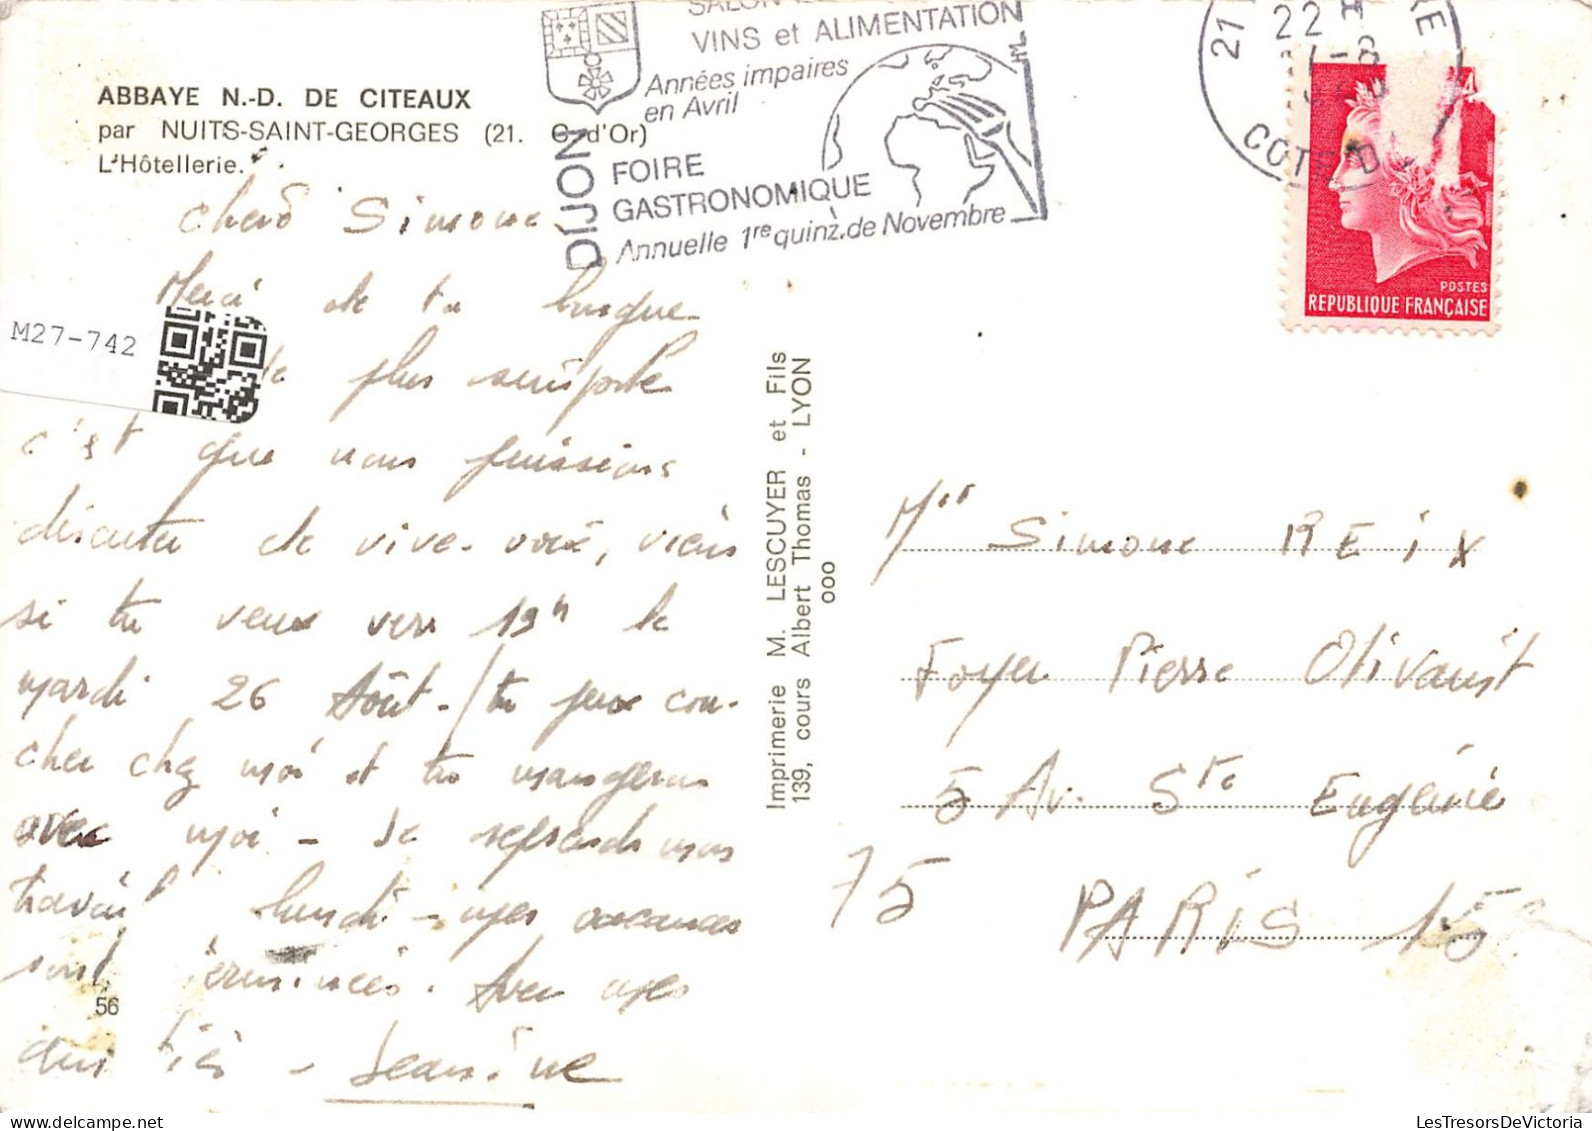 ABBAYE N.-D. DE CITEAUX
par NUITS-SAINT-GEORGES (21. C. d'Or)
L'Hôtellerie.
VINS et ALIMENTATION
Années impaires
en Avril
DIJON
FOIRE
GASTRONOMIQUE
Annuelle 1re quinz. de Novembre
21
22
COTE D
POSTES
REPUBLIQUE FRANÇAISE
M27-742
Simone
Merci de ta longue
plus
c'est que nous puissions
discuter de vive-voix, viens
si tu veux vers 19h le
mardi 26 Août - tu peux cou-
cher chez moi et tu mangeras
avec moi - Je reprends mon
travail lundi - mes vacances
sont terminées. Avec mes
amitiés - Jeannine
56
Imprimerie M. LESCUYER et Fils
139, cours Albert Thomas - LYON
ooo
Simone REIX
Foyer Pierre Olivaint
5 Av. Ste Eugénie
75 PARIS 15
LesTresorsDeVictoria.com